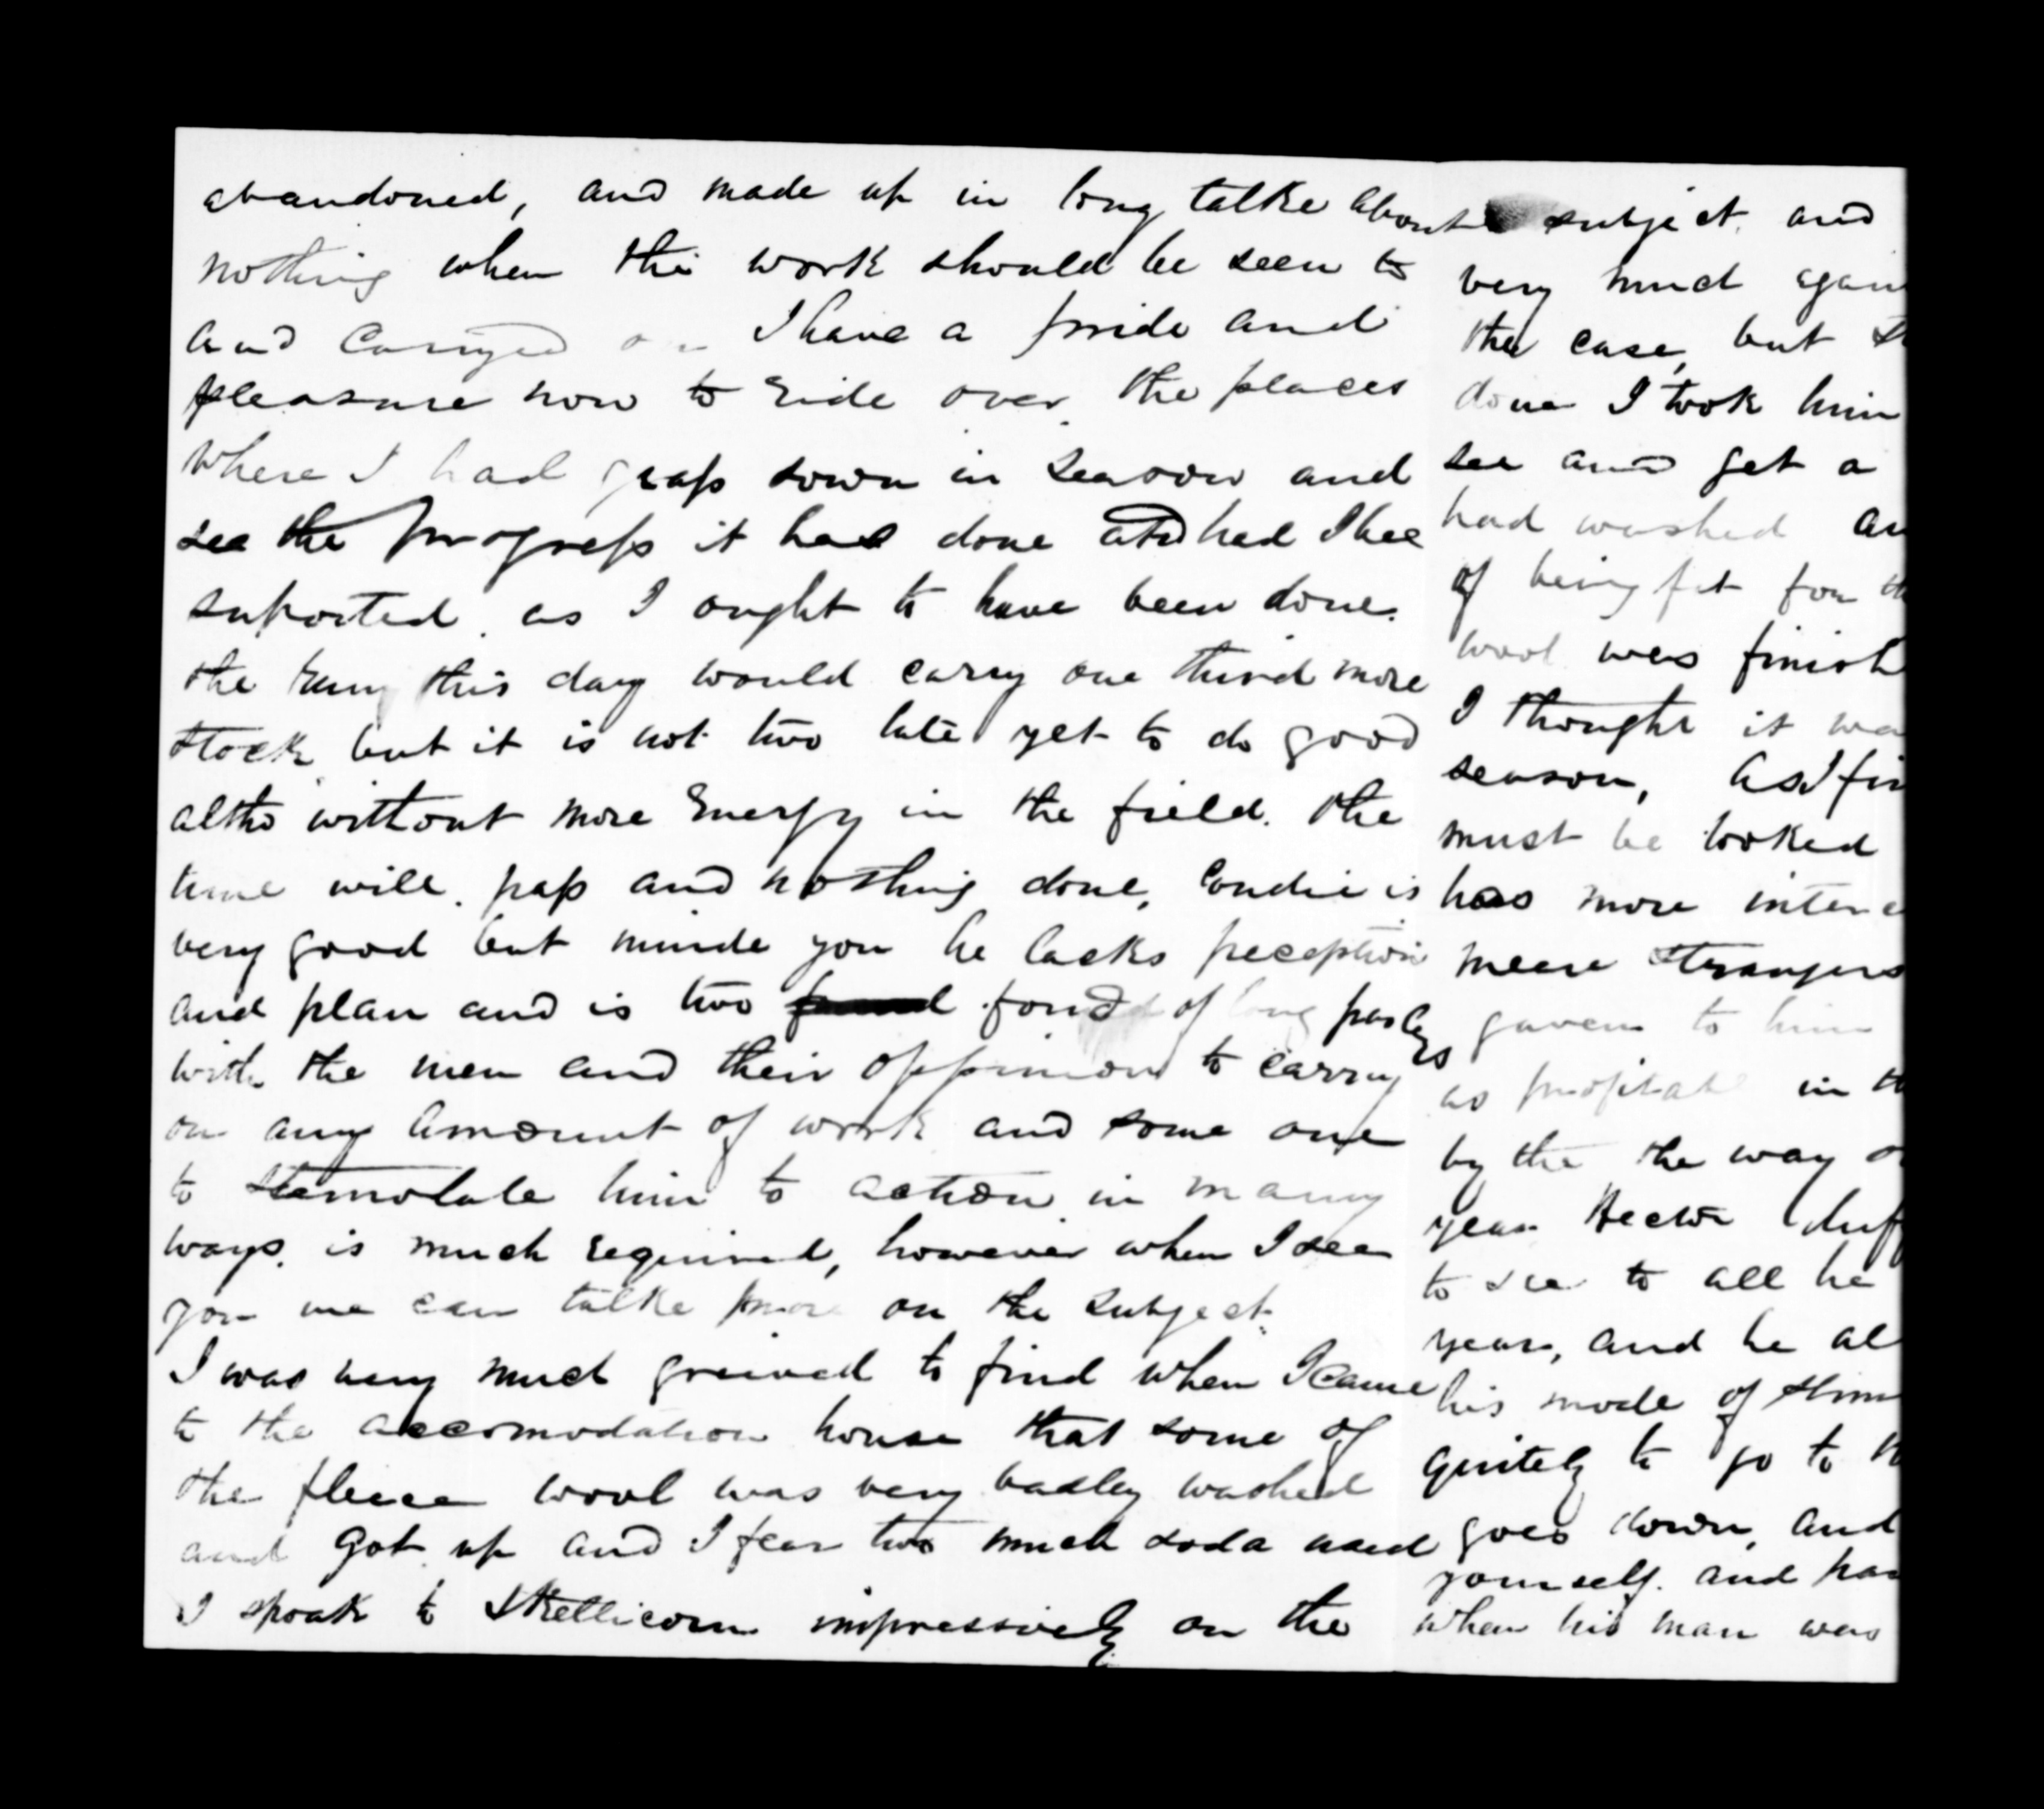 abandoned, and made up in long talke about
nothing when the work should be seen to
and carryed on I have a pride and
pleasure now to ride over the places
where I had grass sown in season and
see the progress it had done and had I bee
suported as I ought to have been done.
the run this day would carry one third more
stock but it is not two late yet to do good
altho without more Energy in the field. the
time will pass and nothing done, Condie is
very good but minde you he lacks preception
and plan and is two fond of long parleys
with the men and their oppinion to carry
on any amount of work and some one
to stemolate him to action in many
ways. is much required, however when I see
you we can talke more on the subject.
I was very much greived to find when I came
to the accomodation house that some of
the fleece wool was very badley washed
and got up and I fear two much soda used
I spoak to Skellicorn impressively on the
subject and
very much again
the case, but
done I took him
see and get a
had washed
of being fit for
wool was finish
I thought it wa
season, As I fin
must be looked
has more intere
meere strangers
gaven to him
as profitabl in
by the the way
year Hector
to see to all he
years, and he al
his mode of
quitely to go to
goes down, and
yourself. and ha
when his man was